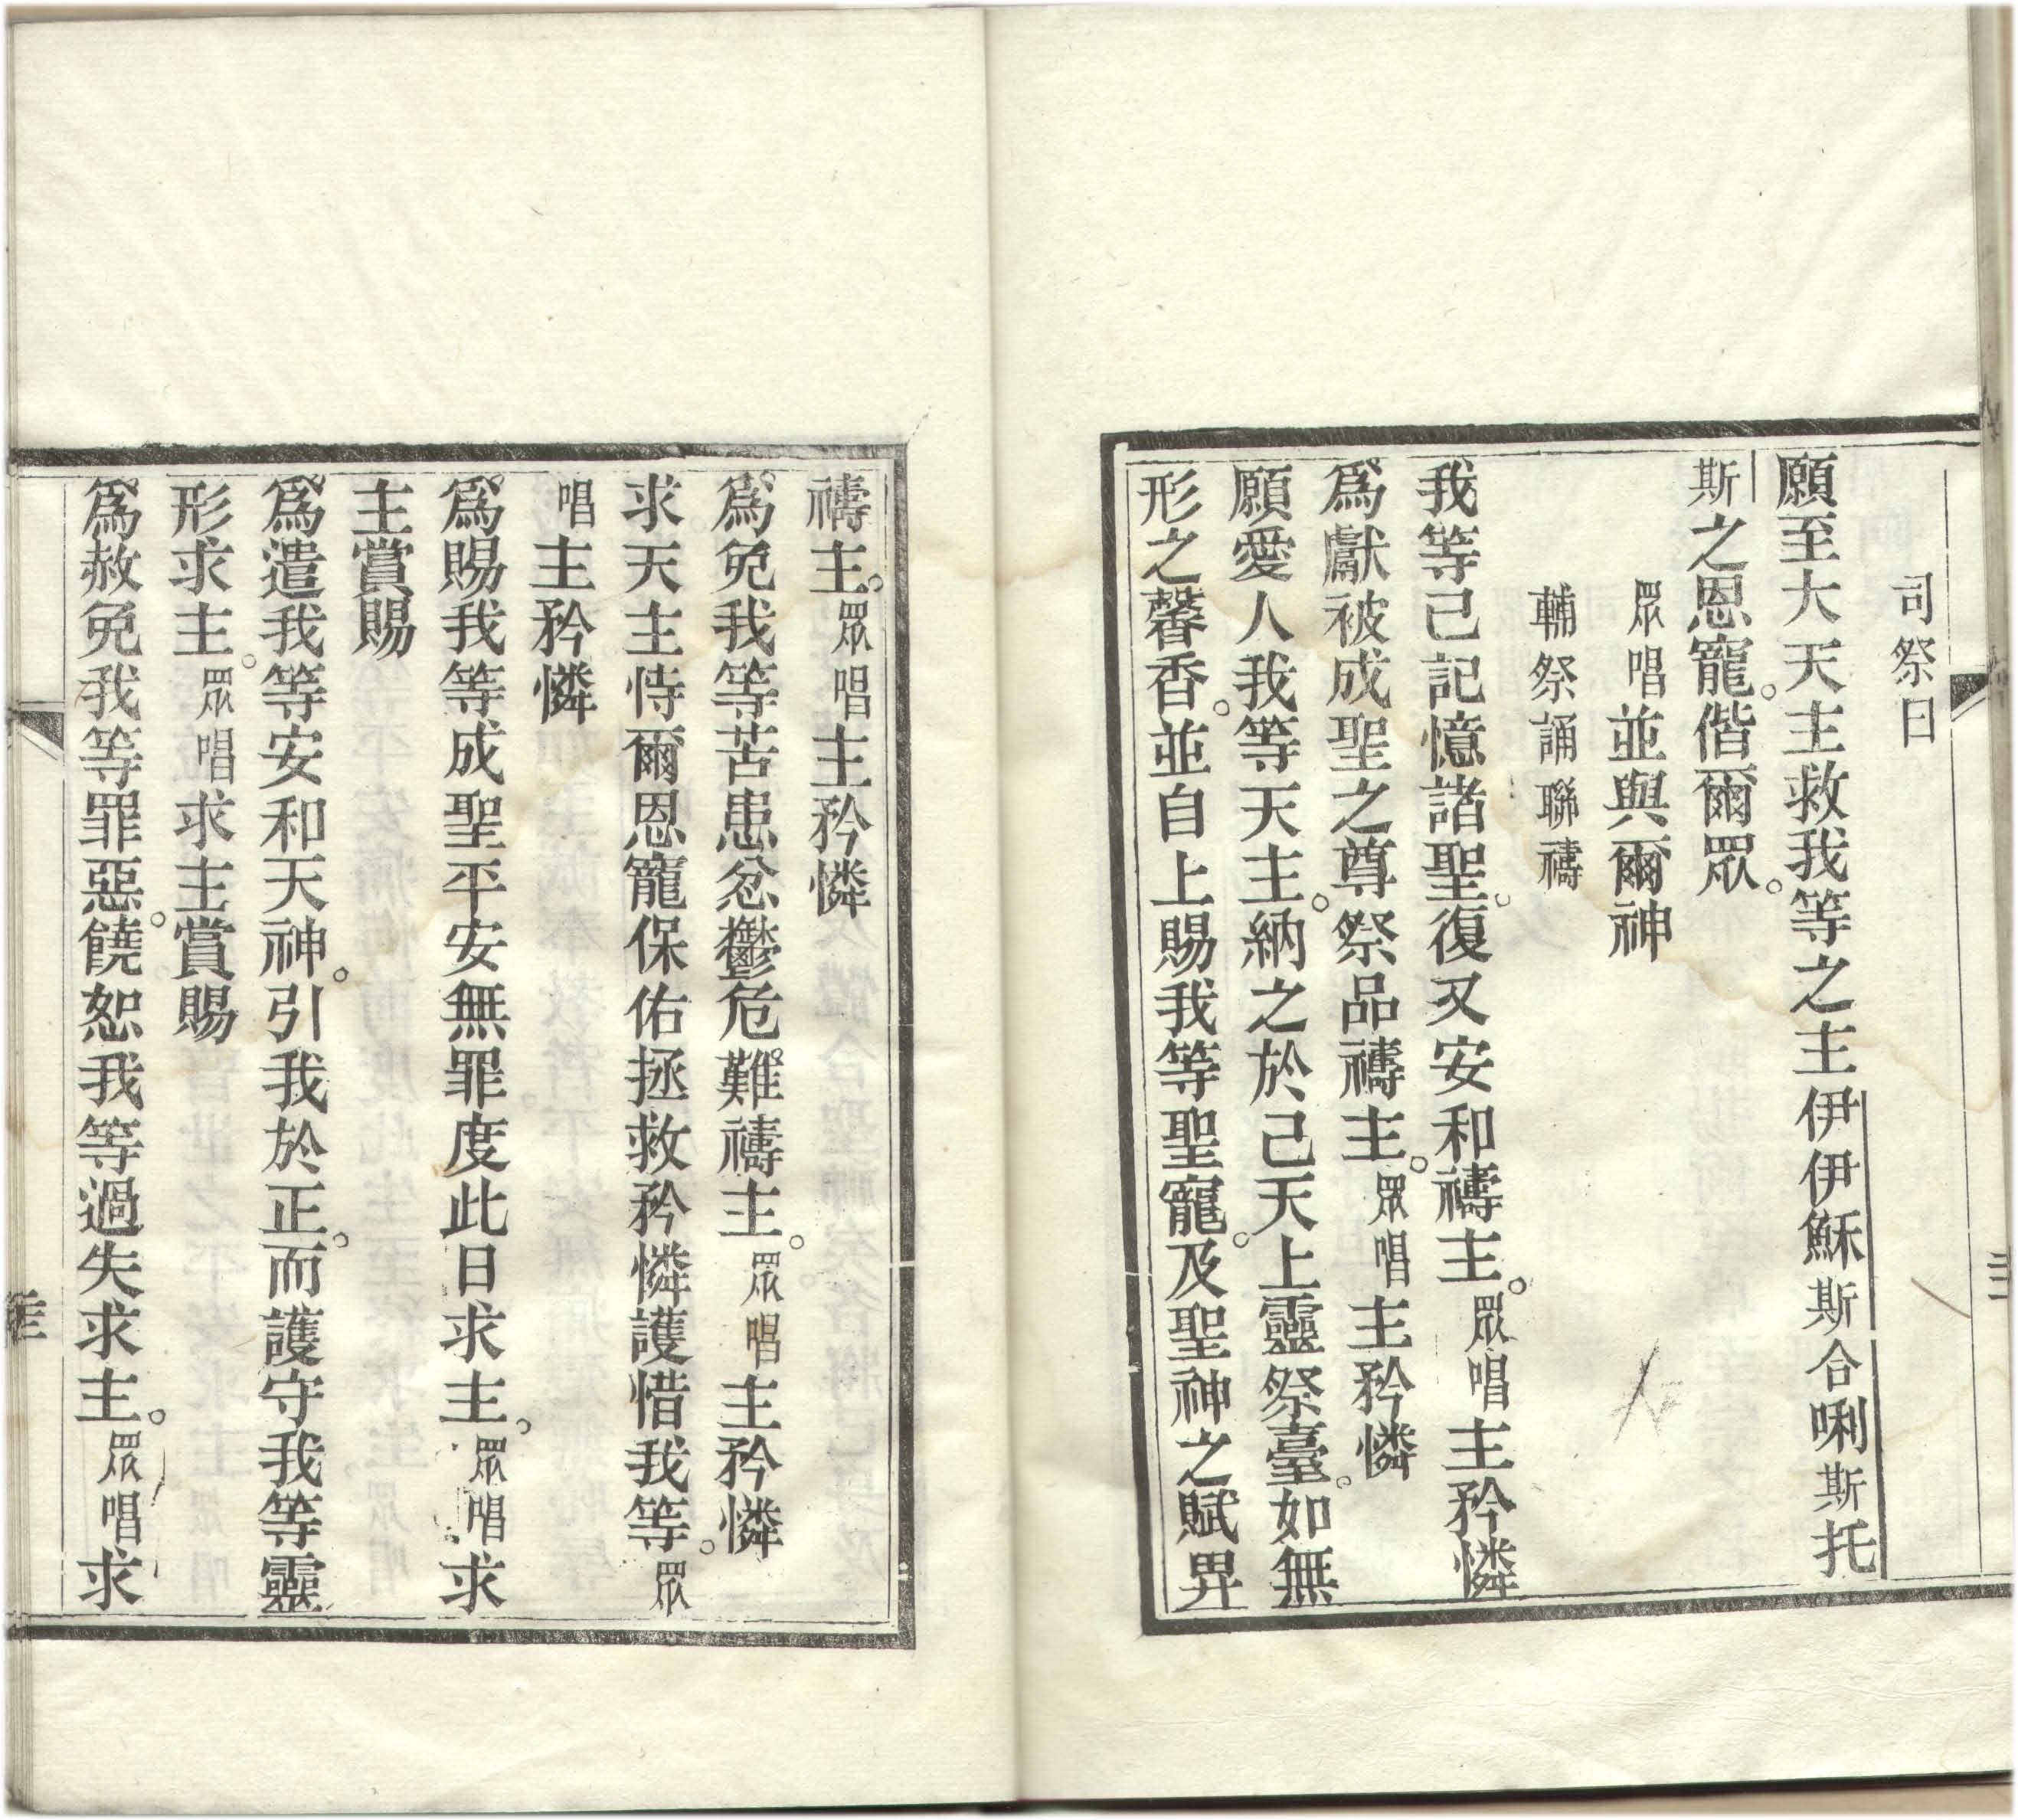 司祭曰
願至大天主救我等之主伊伊穌斯合唎斯托
斯之恩寵。偕爾眾。
眾唱並與爾神
輔祭誦聯禱
我等已記憶諸聖。復又安和禱主。眾唱主矜憐
爲獻被成聖之尊祭品禱主。眾唱主矜憐
願愛人我等天主。納之於己天上靈祭臺。如無
形之馨香。並自上賜我等聖寵。及聖神之賦畀
禱主。眾唱主矜憐
爲免我等苦患忿鬱危難禱主。眾唱主矜憐
求天主恃爾恩寵保佑拯救矜憐護惜我等。眾
唱主矜憐
爲賜我等成聖平安無罪度此日求主。眾唱求
主賞賜
爲遣我等安和天神。引我於正。而護守我等靈
形求主。眾唱求主賞賜
爲赦免我等罪惡。饒恕我等過失求主。眾唱求